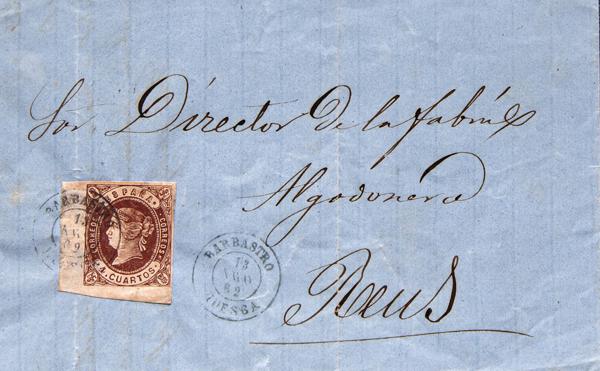 Sor. Director de la fábrica
Algodonera
Reus
ESPAÑA
CORREOS
CORREOS
4 CUARTOS
BARBASTRO
13
AGO
62
HUESCA
BARBASTRO